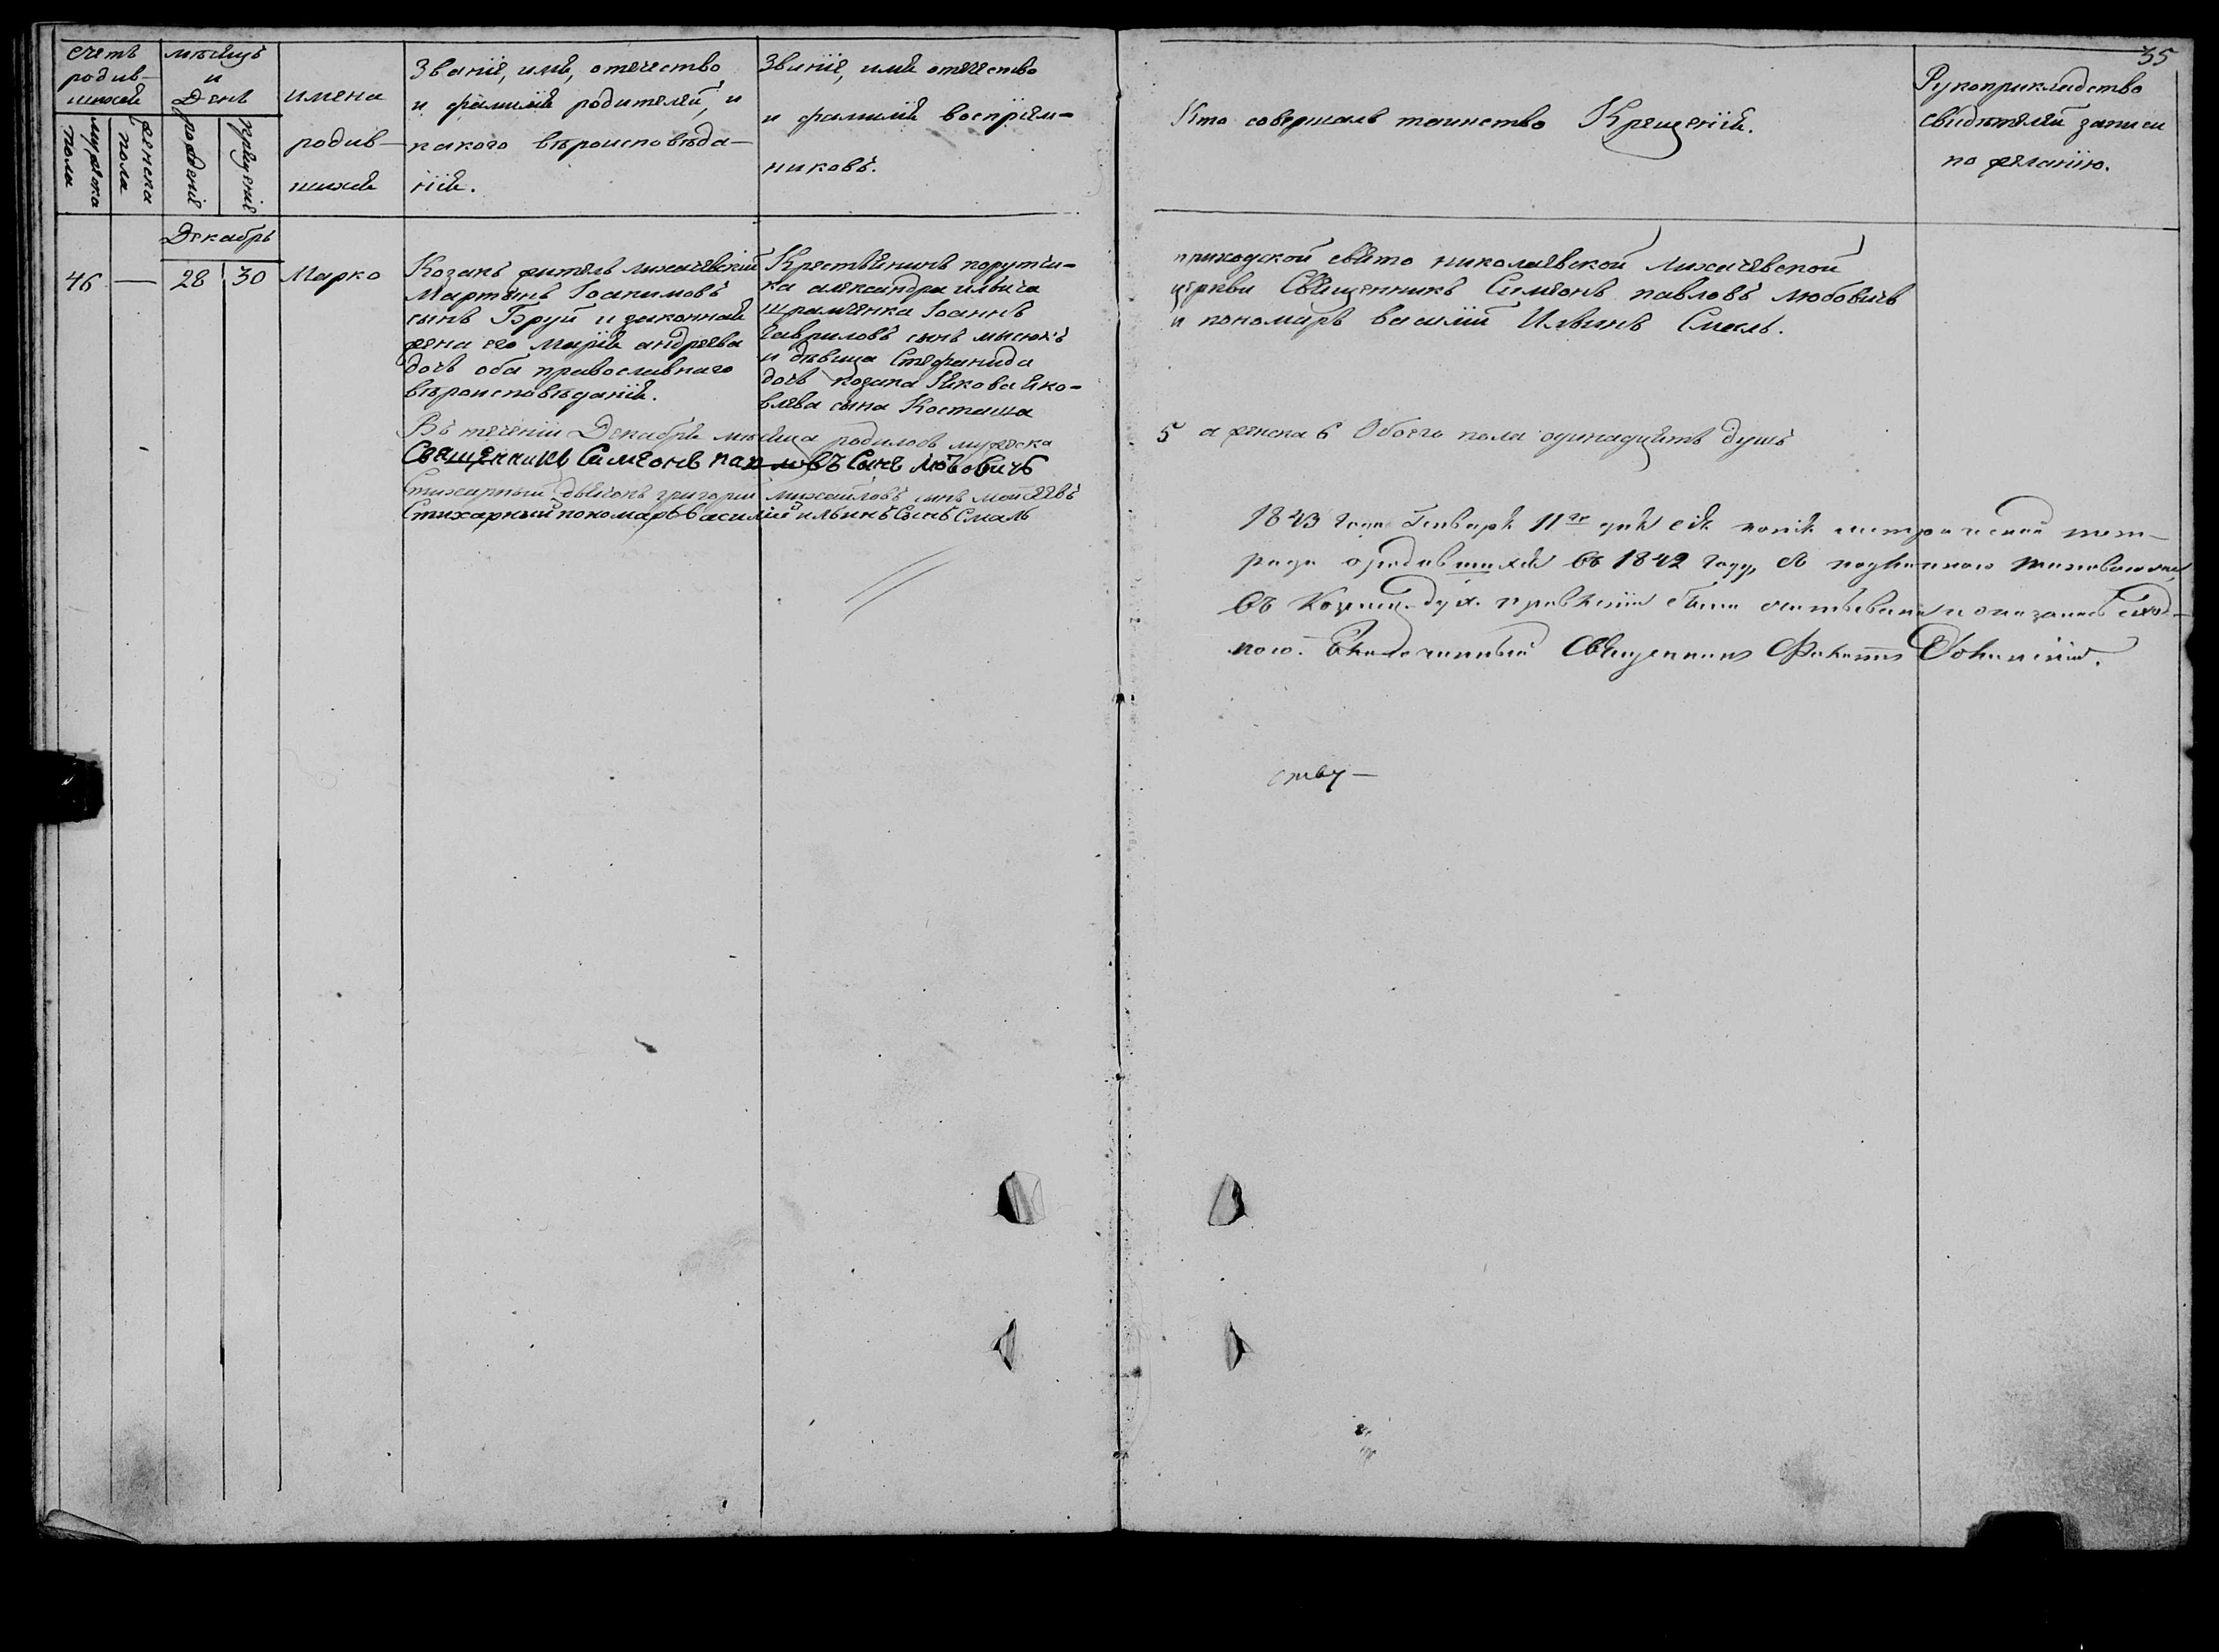 35
счетъ
родив-
шихся
мужеска
пола
женска
пола
мѣсяцъ
и
День
рожденіе
крещеніе
имена
родив-
шихся
Званіе, имя, отечество
и фамилія родителей, и
какого вѣроисповѣда-
нія.
Званіе, имя отечество
и фамилія воспріем-
никовъ.
Кто совершалъ таинство Крещенія.
Рукоприкладство
свидѣтелей записи
по желанію.
Декабрь
46 — 28 30 Марко
Козакъ житель лихачевскій
Мартынъ Іоакимовъ
сынъ Бруй и законная
жена его Марія андреева
дочь оба православнаго
вѣроисповѣданія.
Крестьянинъ порутчи-
ка александра ильича
шрамченка Іоаннъ
Гавриловъ сынъ мысюкъ
и дѣвица Стефанида
дочь козака Якова Яко-
влева сына Косташа
приходской свято николаевской лихачевской
церкви Священникъ Симеонъ павловъ любовичъ
и пономарь василій Ильинъ Смаль.
Въ теченіи Декабря мѣсяца родилось мужеска
5 а женска 6 Обоего пола одинадцять душъ
Священникъ Симеонъ павловъ Сынъ Любовичъ
Стихарный дьячокъ григорій михайловъ сынъ
Стихарный пономарь василій ильинъ Сынъ Смаль
1843 года Генваря 11го дня сія копія метрической тет-
ради о родившихся въ 1842 году, съ подлинною
въ Козелец. дух. правленіи была считывана и оказалась сход-
ною. Благочинный Священник